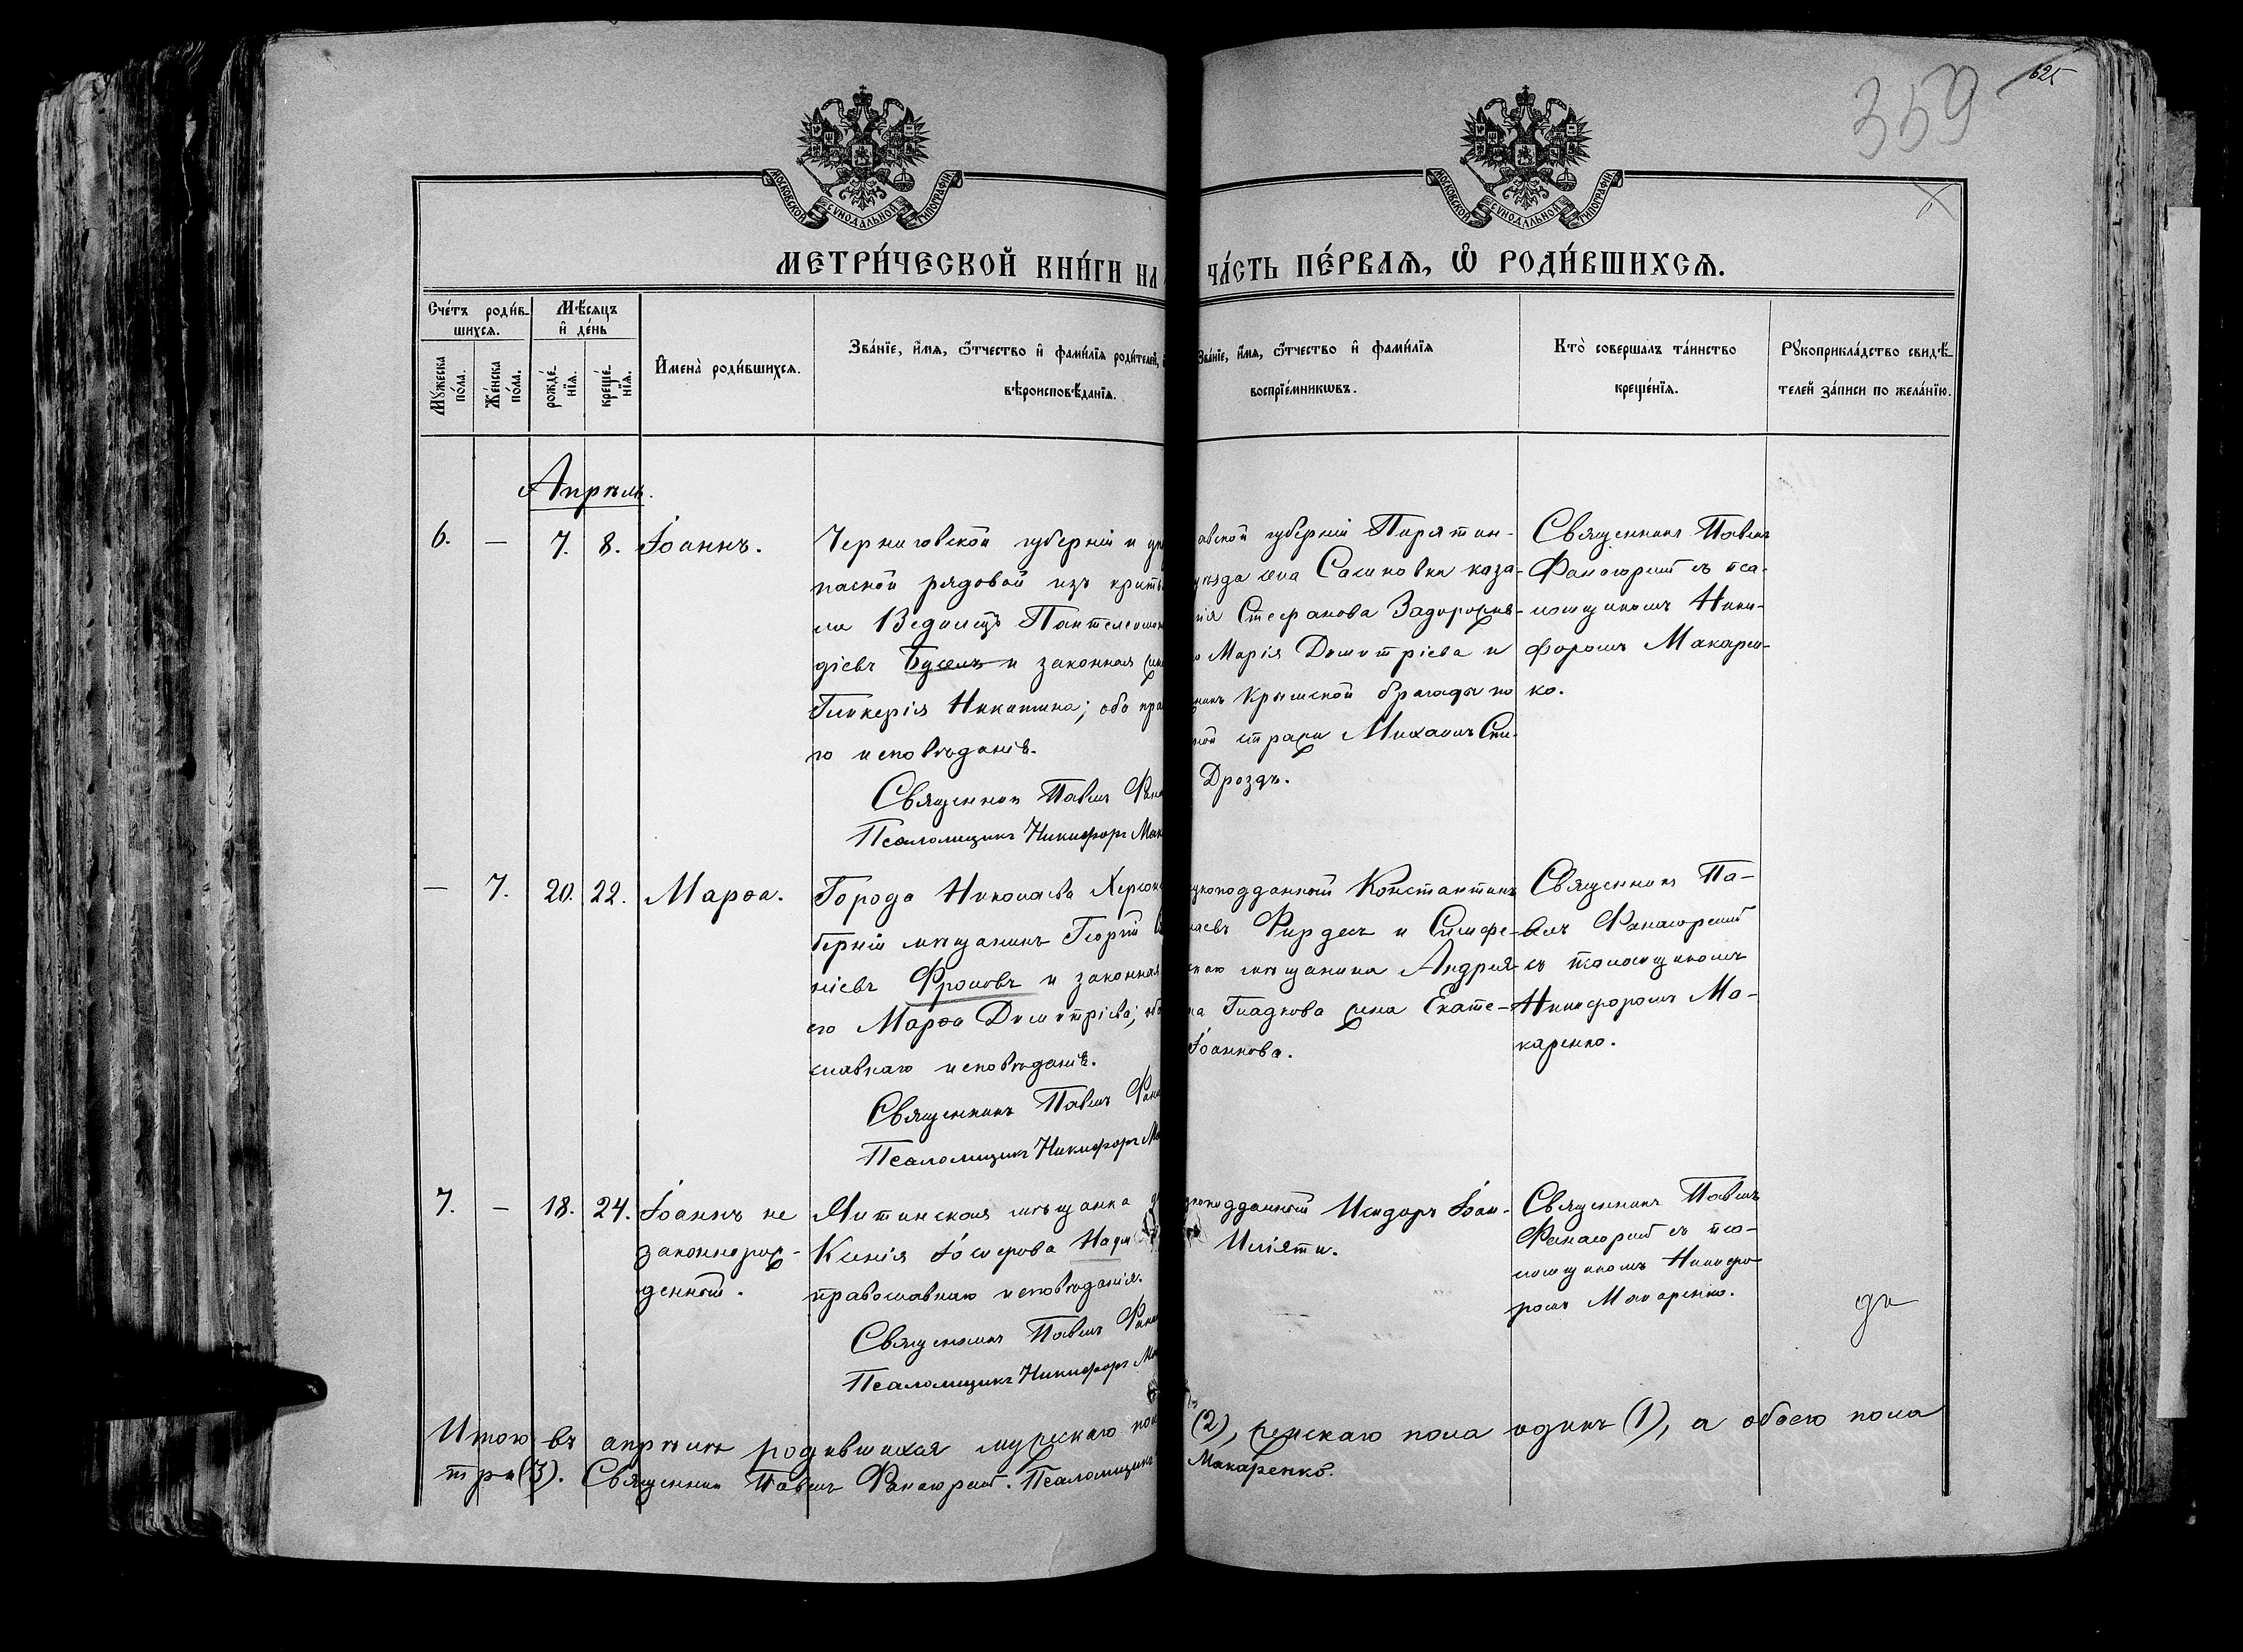 625
359
МОСКОВСКОЙ СѴНОДАЛЬНОЙ ТИПОГРАФІИ
МОСКОВСКОЙ СѴНОДАЛЬНОЙ ТИПОГРАФІИ
МЕТРИ́ЧЕСКОЙ КНИ́ГИ НА
ЧА́СТЬ ПЕ́РВАѦ, Ѽ РОДИ́ВШИХСѦ.
Сче́тъ роди́в-
шихсѧ.
Мѣ́сѧцъ
и҆ де́нь
Мꙋ́жеска
по́ла.
Же́нска
по́ла.
рожде́-
нїѧ.
креще́-
нїѧ.
И҆мена̀ роди́вшихсѧ.
Зва́нїе, и҆́мѧ, ѻ҆́тчество и҆ фамѝлїѧ роди́телей,
вѣроисповѣ́данїѧ.
Зва́нїе, и҆́мѧ, ѻ҆́тчество и҆ фамѝлїѧ
воспрїе́мникѡвъ.
Кто̀ соверша́лъ та́инство
креще́нїѧ.
Рꙋкоприкла́дство свидѣ́-
телей за́писи по жела́нїю.
Апрѣль.
6. — 7. 8. Іоаннъ.
Черниговской губерніи и
пасной рядовой изъ
Пантелеимон
діевъ и законная
Гликерія Никитина; оба пра
го исповѣданія.
Священникъ Павелъ Фана
Псаломщикъ Никифоръ Мак
авской губерніи Пирятин-
уѣзда села Сасиновки каза-
Стефанова Задорожн
Марія Димитріева и
Крымской бригады по
ной стражи Михаилъ Спи-
Дроздъ.
Священникъ Павелъ
Фанагорскій съ пса-
ломщикомъ Ники-
форомъ Макарен-
ко.
— 7. 20. 22. Марѳа.
Города Николаева Херсон
берніи мѣщанинъ Георгій
ніевъ Фроловъ и законная
его Марѳа Димитріева; об
славнаго исповѣданія.
Священникъ Павелъ Фана
Псаломщикъ Никифоръ Ма
цкоподданный Константинъ
лаевъ Фирдесъ и Симфе-
скаго мѣщанина Андрея
на Гладкова жена Екате-
Іоаннова.
Священникъ Па-
велъ Фанагорскій
съ псаломщикомъ
Никифоромъ Ма-
каренко.
7. — 18. 24. Іоаннъ не
законнорож-
денный.
Ялтинская мѣщанка
Ксенія Іосифова
православнаго исповѣданія.
Священникъ Павелъ Фана
Псаломщикъ Никифоръ Ма
цкоподданный Исидоръ Іоан-
Священникъ Павелъ
Фанагорскій съ пса-
ломщикомъ Никифо
ромъ Макаренко.
Итого въ апрѣлѣ родившихся мужескаго пол
(2), женскаго пола одинъ (1), а обоего пола
три (3). Священникъ Павелъ Фанагорскій. Псаломщикъ
Макаренко.